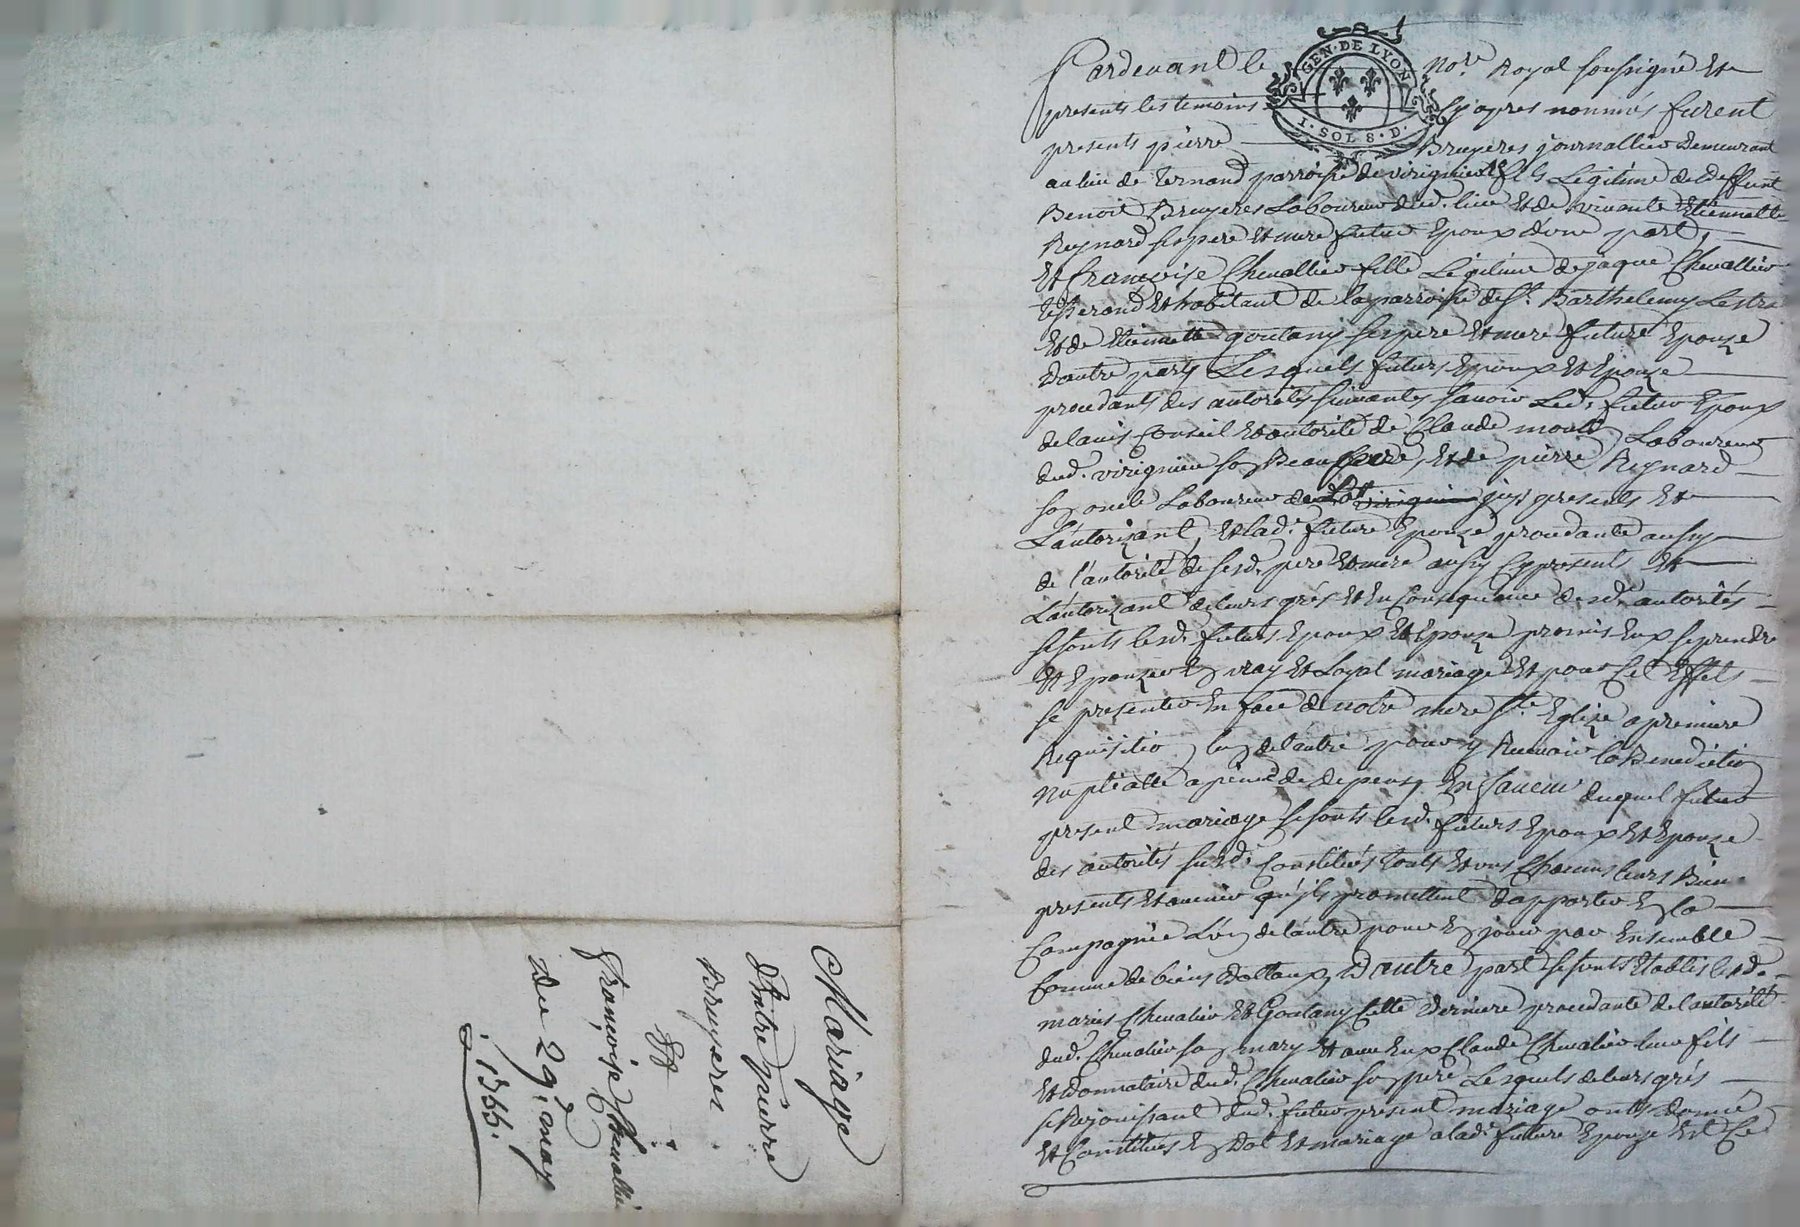 Mariage
D'Entre pierre
Bruyeres
&
françoise Chevallier
Du 29e. may
GEN·DE LYON
1·SOL 8·D·
Pardevant le Nore. Royal soussigné Et
presents les temoins Cy apres nommés furent
presents pierre Bruyeres journallier Demeurant
au lieu de Ternand parroisse de virignieu fils Legitime de deffunt
Benoit Bruyeres Laboureur dud. lieu Et de vivante Etiennette
Reynard ses pere Et mere futur Epoux d'une part,
Et françoise Chevallier fille Legitime de jaque Chevallier
tisserand Et habitant de la parroisse de St. Barthelemy Lestra
Et de Etiennette goutany ses pere Et mere future Epouze
dautre part Lesquels futurs Epoux Et Epouze
procedants des autorités suivantes savoir Led. futur Epoux
de lavis Conseil Et autorité de Claude Laboureur
dud. virignieu son Beau frere, Et de pierre Reynard
son oncle Laboureur presents Et
L'autorizant, Et lad. future Epouze procedante aussy
de l'autorité de sesd. pere Et mere aussy Cy presents Et
L'autorizant de leurs grés Et En Consequence desd. autorités
se sonts lesd. futurs Epoux Et Epouze promis Eux se prendre
Et Epouzer En vray Et Loyal mariage Et pour Cet Effet
se presenter En face de notre mere Ste. Eglize a premiere
Requisition de l'autre pour y Recevoir la Benediction
Nuptialle a peine de depens, En faveur duquel futur
present mariage se sonts lesd. futurs Epoux Et Epouze
des autorités susd. Constitués touts Et uns Chacuns leurs Biens
presents Et avenir qu'ils promettent d'apporter En la
Compagnie L'un de l'autre pour En jouir par Ensemble
Comme de biens dottaux, D'autre part se sonts Etablis lesd.
mariés Chevalier Et Goutany Cette derniere procedante de l'autorité
dud. Chevalier son mary Et avec Eux Claude Chevalier leur fils
Et donnataire dud. Chevalier son pere Lesquels de leurs grés
se Rejouissant dud. futur present mariage onts donné
Et Constitués En Dot Et mariage a lad. future Epouze Et Ce